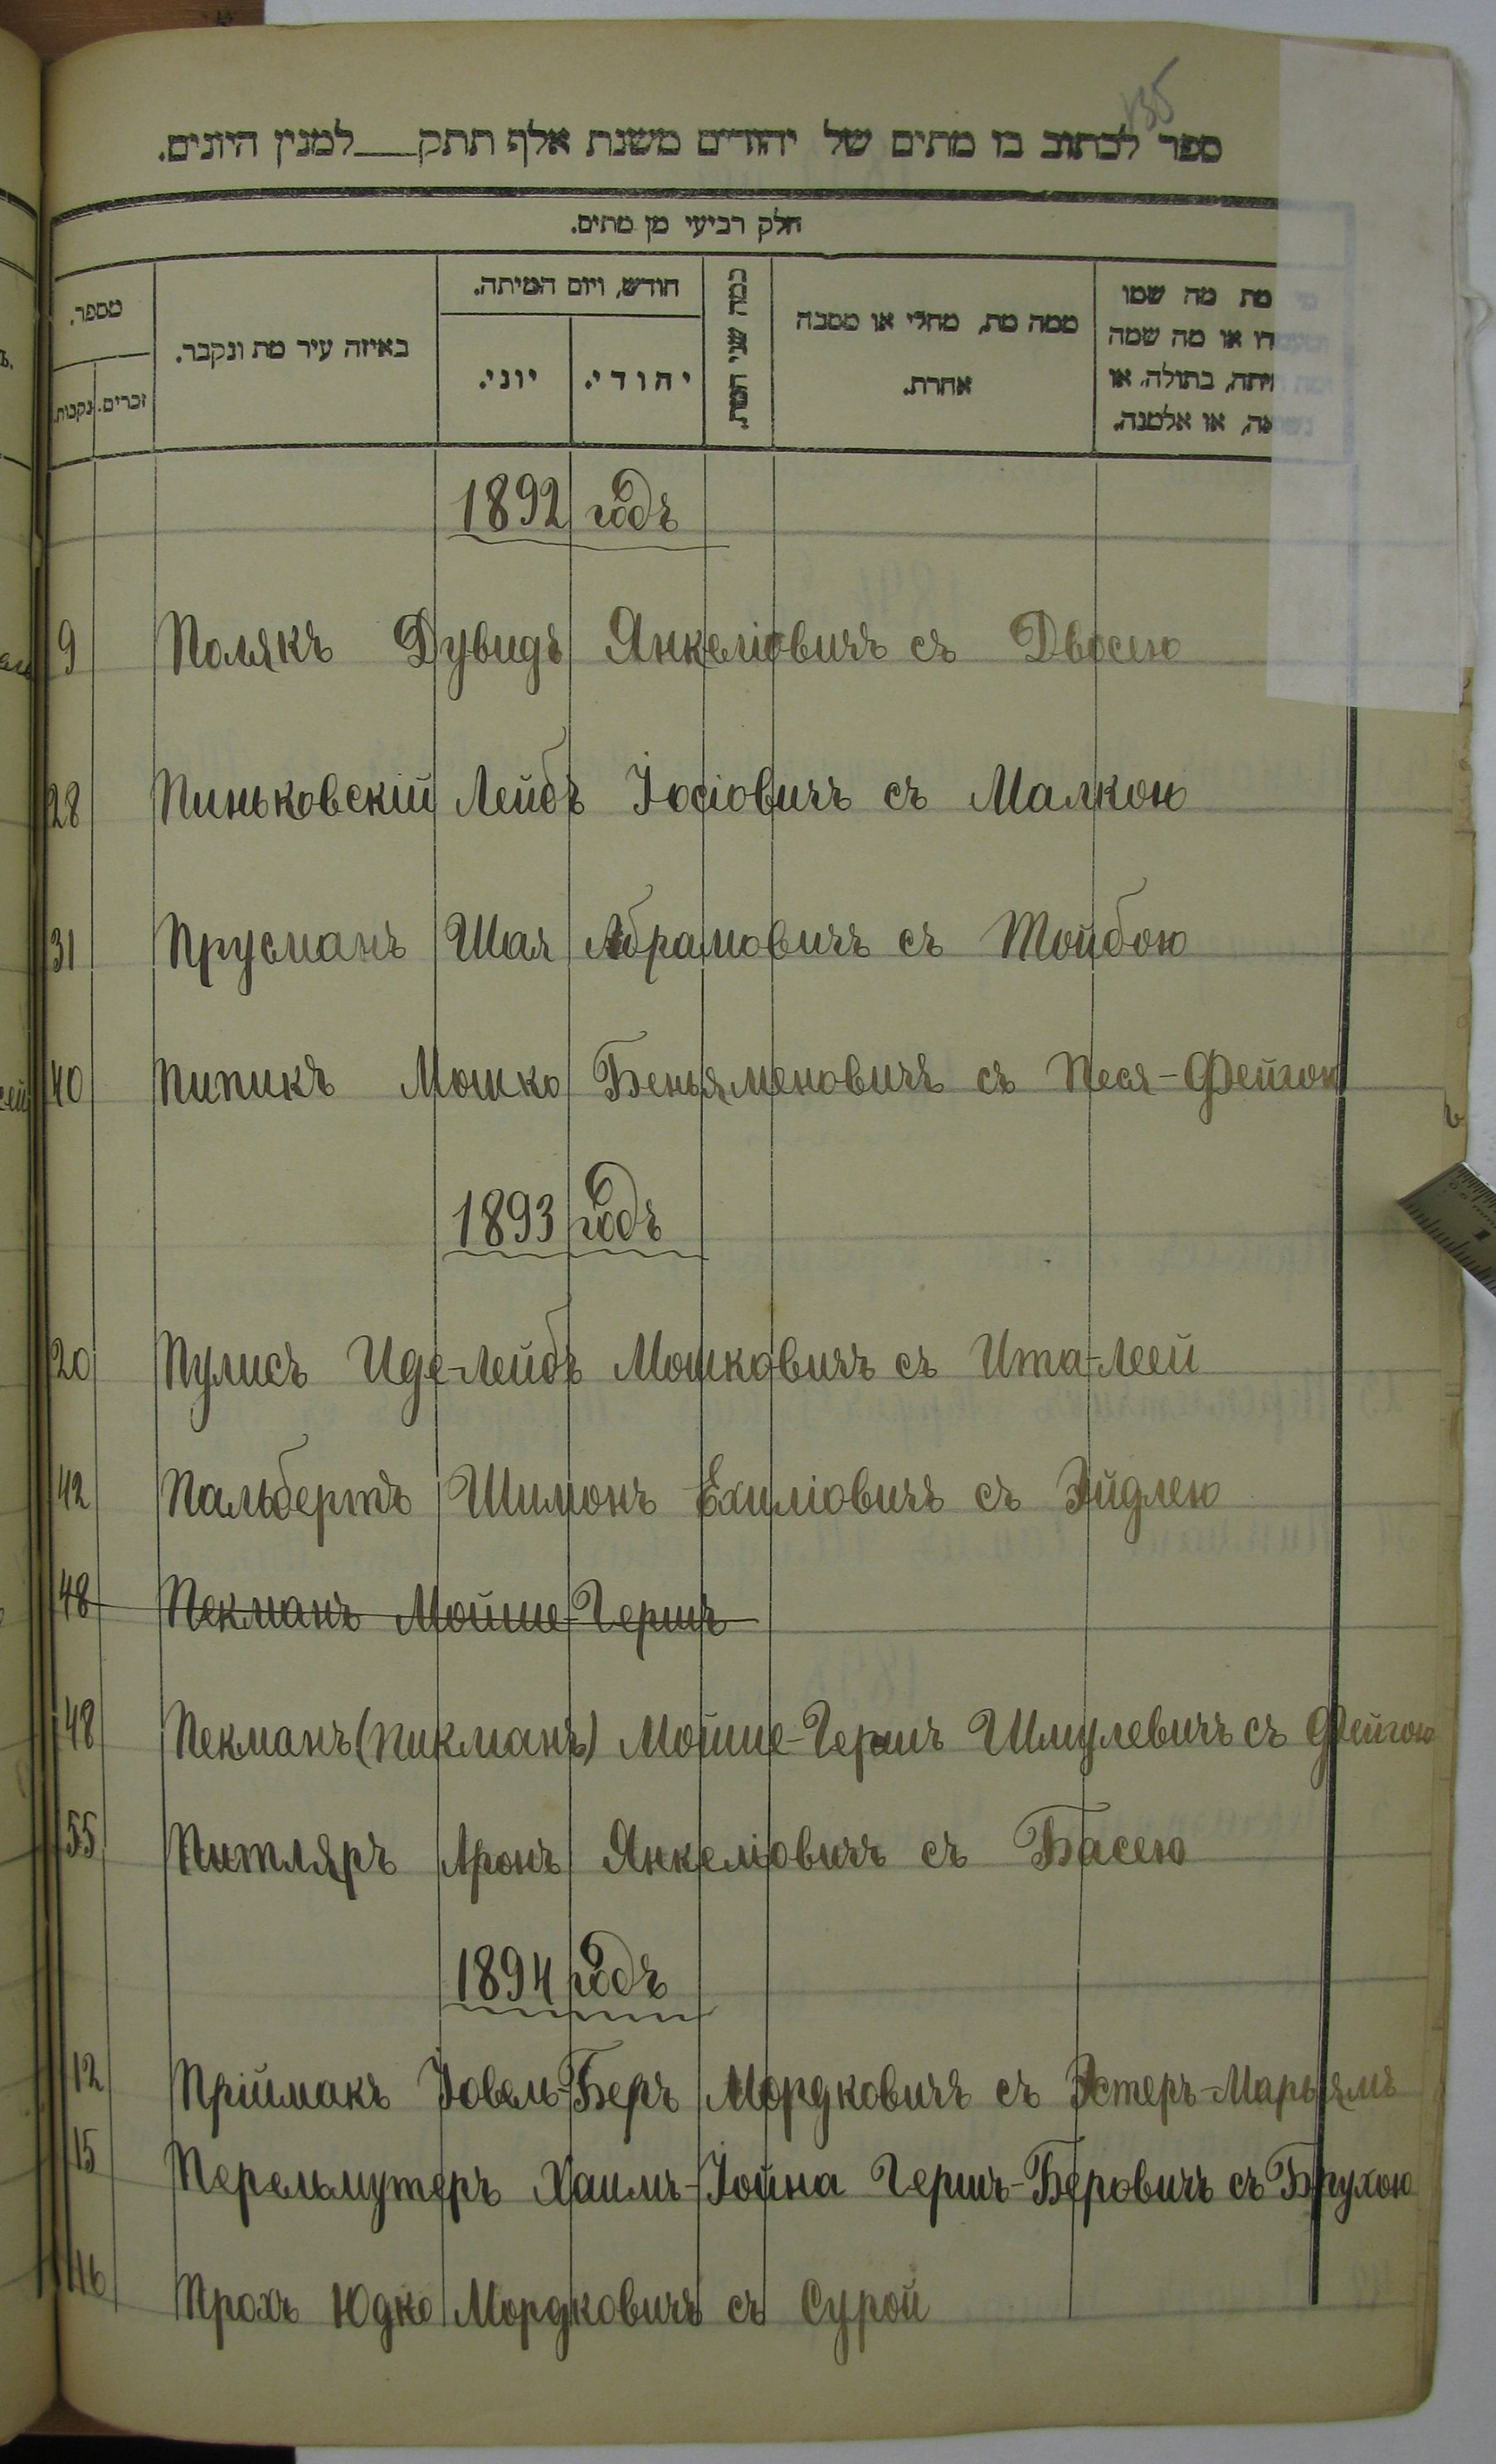 135
ספר לכתוב בו מתים של יהודים משנת אלף תתק___למנין היונים.
חלק רביעי מן מתים.
מת מה שמו
או מה שמה
בתולה, או
או אלמנה.
ממה מת, מחלי או מסבה
אחרת.
כמה שני המת.
חודש, ויום המיתה.
יהודי.
יוני.
באיזה עיר מת ונקבר.
מספר.
זכרים.
נקבות.
1892 годъ
9 Полякъ Дувидъ Янкеліовичъ съ Двосею
28 Пиньковскій Лейбъ Іосіовичъ съ Малкою
31 Прусманъ Шая Абрамовичъ съ Тойбою
40 Пипикъ Мошко Беньяменовичъ съ Песя-Фейгою
1893 годъ
20 Пулисъ Иде-Лейбъ Мошковичъ съ Ита-Леей
42 Пальбертъ Шимонъ Ехиліовичъ съ Эйдлею
48 Пекманъ Мойше-Гершъ
48 Пекманъ (Пикманъ) Мойше-Гершъ Шмулевичъ съ Фейгою
55 Питляръ Аронъ Янкеліовичъ съ Басею
1894 годъ
12 Пріймакъ Іовель-Беръ Мордковичъ съ Эстеръ-Марьямъ
15 Перельмутеръ Хаимъ-Іойна Гершъ-Беровичъ съ Брухою
46 Прохъ Юдко Мордковичъ съ Сурой